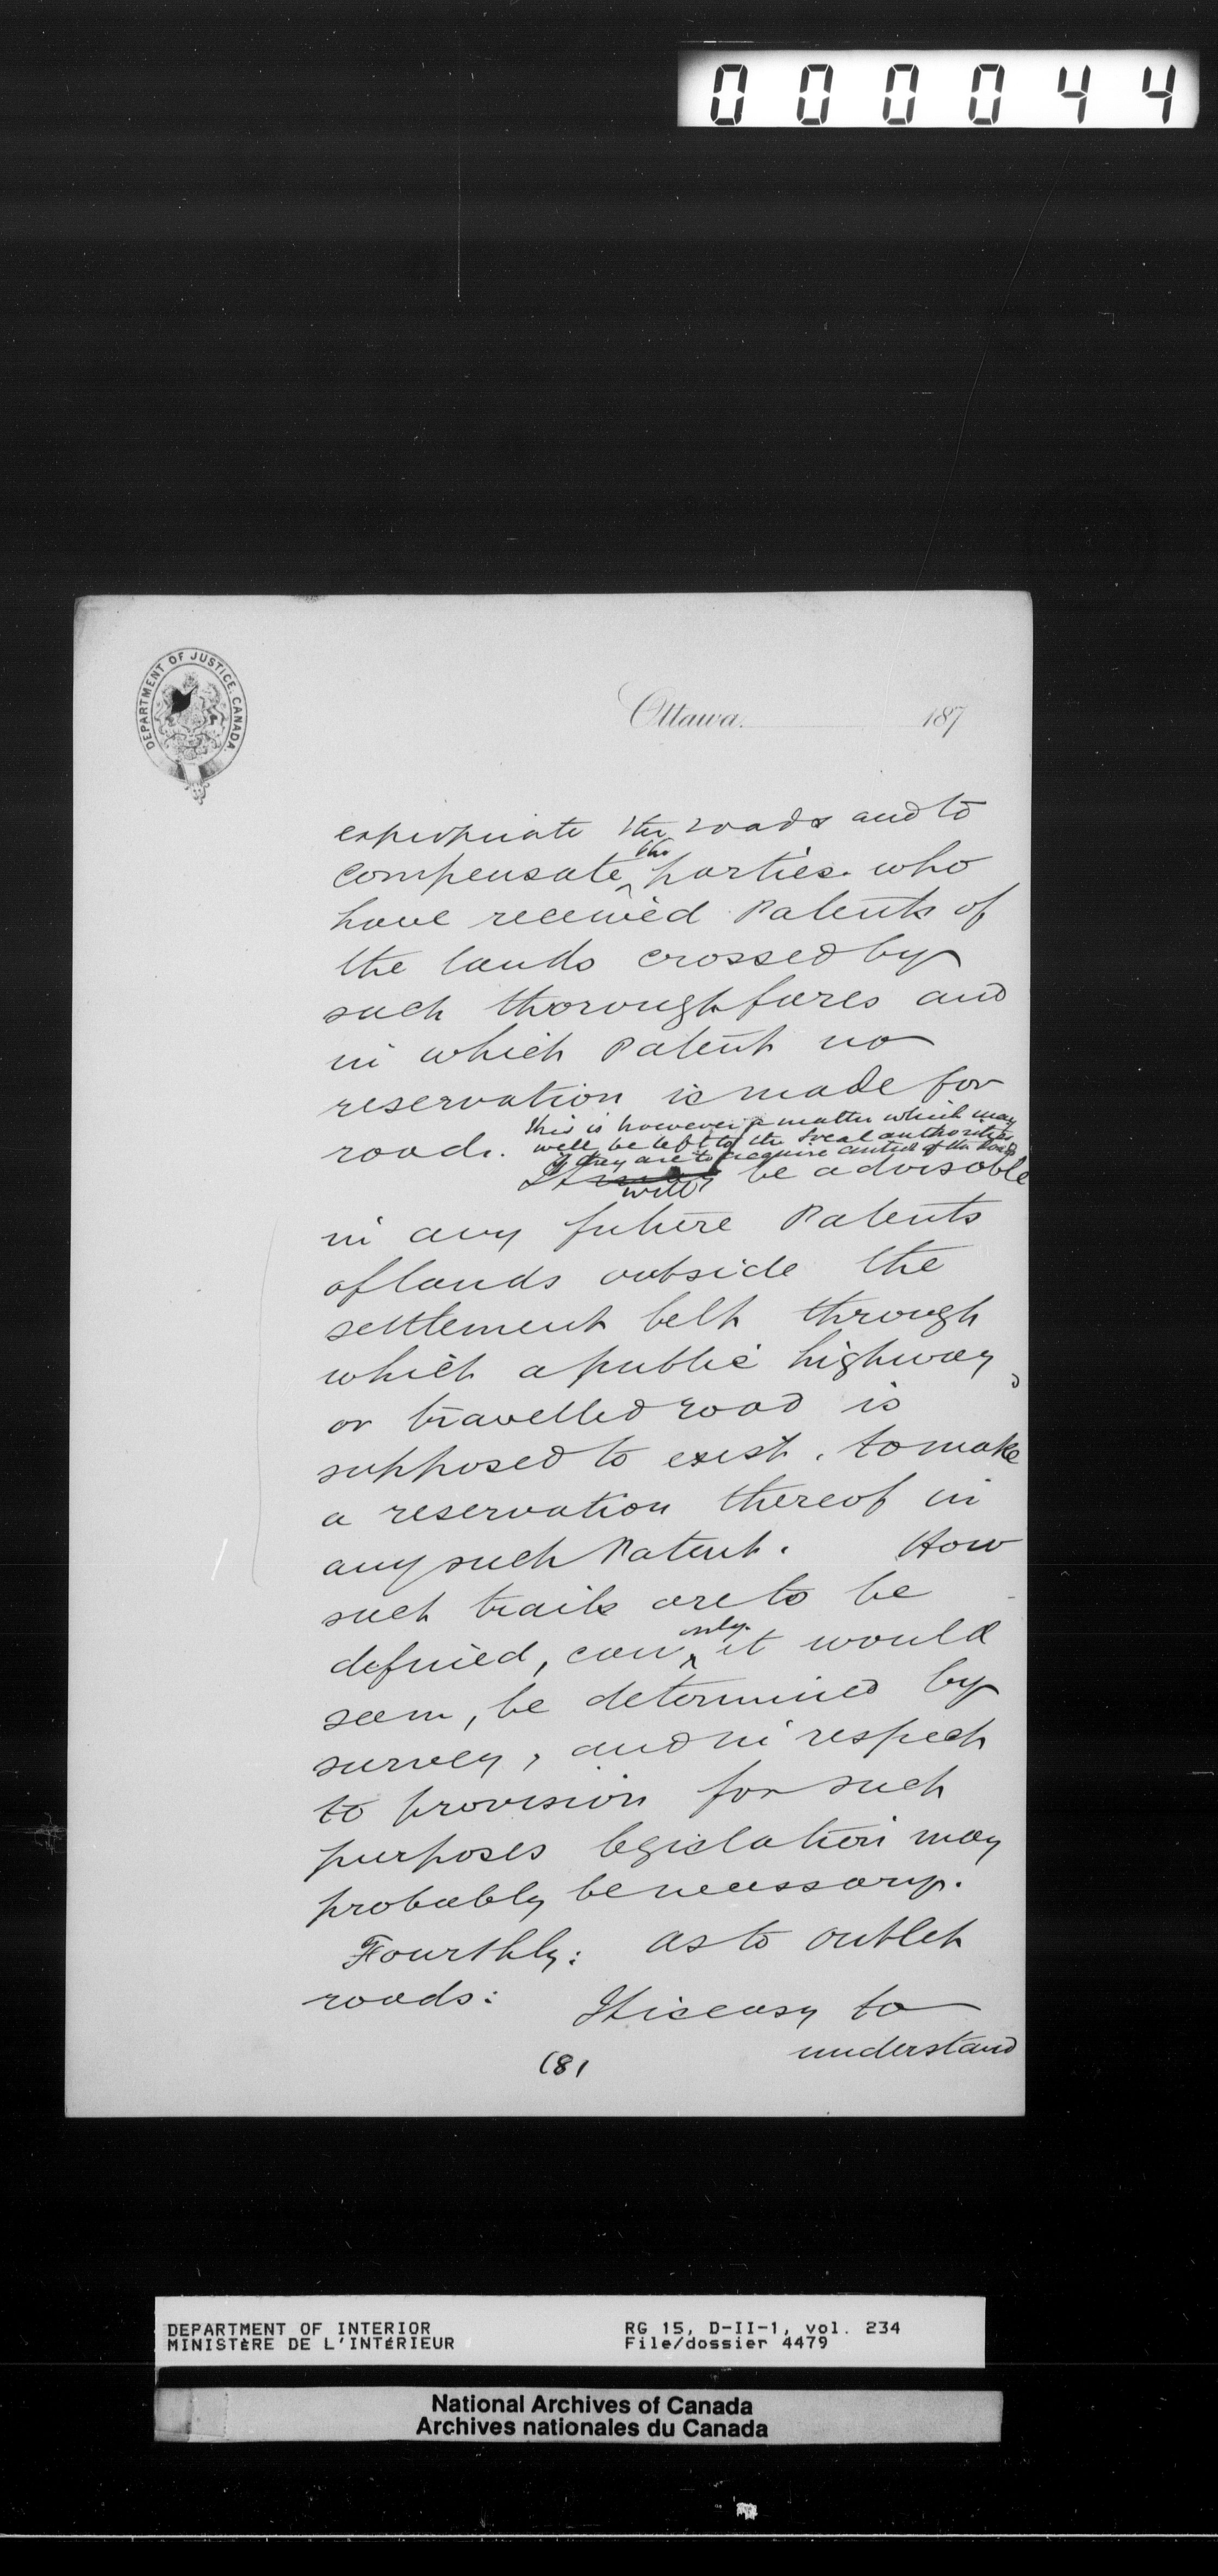 000044
DEPARTMENT OF JUSTICE, CANADA
Ottawa. 187
expropriate the roads and to
compensate the parties who
have received Patents of
the lands crossed by
such thoroughfares and
in which Patent no
reservation is made for
roads. This is however a matter which may
well be left to the local authorities
if they are to acquire control of the roads
It will be advisable
in any future Patents
of lands outside the
settlement belt through
which a public highway
or travelled road is
supposed to exist, to make
a reservation thereof in
any such Patent. How
such trails are to be
defined, can only it would
seem, be determined by
survey, and in respect
to provision for such
purposes legislation may
probably be necessary.
Fourthly: as to outlet
roads: It is easy to
understand
(8)
DEPARTMENT OF INTERIOR RG 15, D-II-1, vol. 234
MINISTÈRE DE L'INTÉRIEUR File/dossier 4479
National Archives of Canada
Archives nationales du Canada